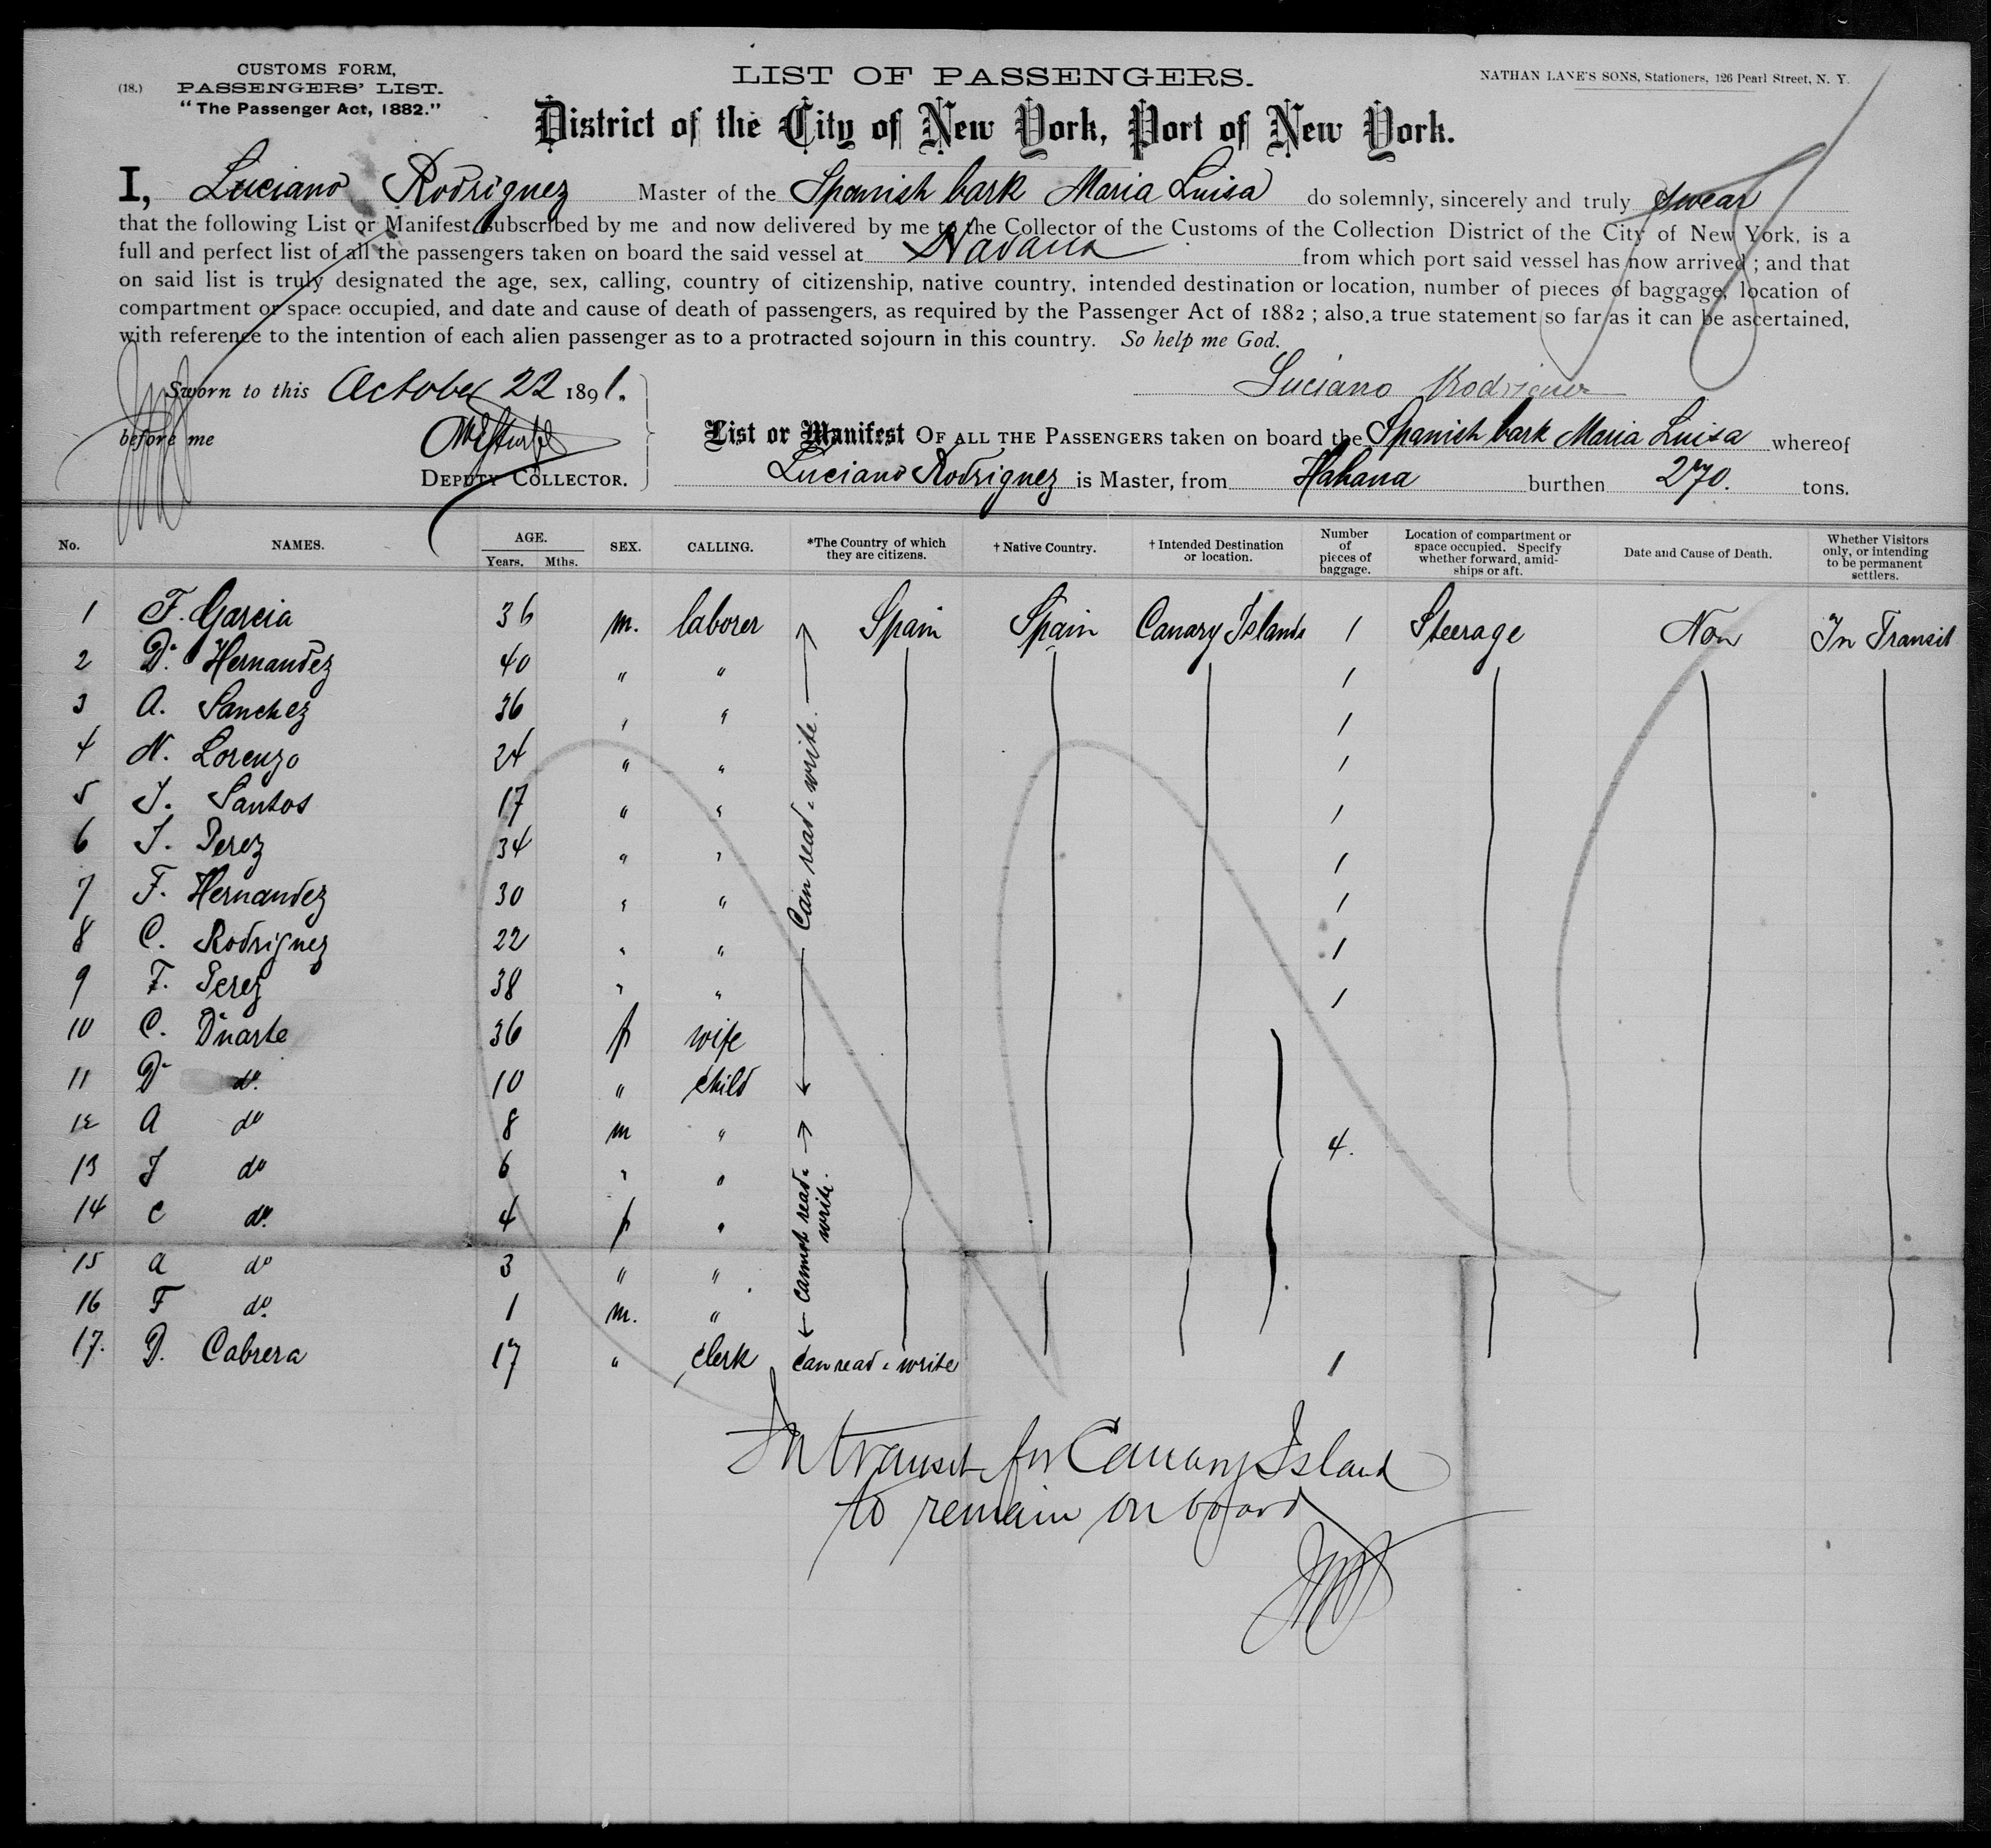 (18.)
CUSTOMS FORM,
PASSENGERS' LIST.
"The Passenger Act, 1882."
LIST OF PASSENGERS.
NATHAN LANE'S SONS, Stationers, 126 Pearl Street, N. Y.
District of the City of New York, Port of New York.
I, Luciano Rodriguez Master of the Spanish bark Maria Luisa do solemnly, sincerely and truly swear
that the following List or Manifest, subscribed by me and now delivered by me to the Collector of the Customs of the Collection District of the City of New York, is a
full and perfect list of all the passengers taken on board the said vessel at Havana from which port said vessel has now arrived; and that
on said list is truly designated the age, sex, calling, country of citizenship, native country, intended destination or location, number of pieces of baggage, location of
compartment or space occupied, and date and cause of death of passengers, as required by the Passenger Act of 1882; also, a true statement so far as it can be ascertained,
with reference to the intention of each alien passenger as to a protracted sojourn in this country. So help me God.
Sworn to this October 22 1891.
Luciano Rodriguez
before me
DEPUTY COLLECTOR.
List or Manifest OF ALL THE PASSENGERS taken on board the Spanish bark Maria Luisa whereof
Luciano Rodriguez is Master, from Habana burthen 270. tons.
No. NAMES. AGE. Years. Mths. SEX. CALLING. *The Country of which they are citizens. †Native Country. †Intended Destination or location. Number of pieces of baggage. Location of compartment or space occupied. Specify whether forward, amidships or aft. Date and Cause of Death. Whether Visitors only, or intending to be permanent settlers.
1 F. Garcia 36 m. laborer Spain Spain Canary Islands 1 Steerage Non In Transit
2 D. Hernandez 40 " " 1
3 A. Sanchez 36 " " 1
4 N. Lorenzo 24 " " 1
5 J. Santos 17 " " 1
6 J. Perez 34 " " 1
7 F. Hernandez 30 " " 1
8 C. Rodriguez 22 " " 1
9 F. Perez 38 " " 1
10 C. Duarte 36 f wife
11 D do. 10 " child
12 A do 8 m " 4.
13 J do 6 " "
14 C do. 4 f "
15 a do 3 " "
16 F do. 1 m. "
17. D. Cabrera 17 " clerk can read & write 1
Can read & write.
Cannot read & write.
In transit for Canary Island
to remain on board